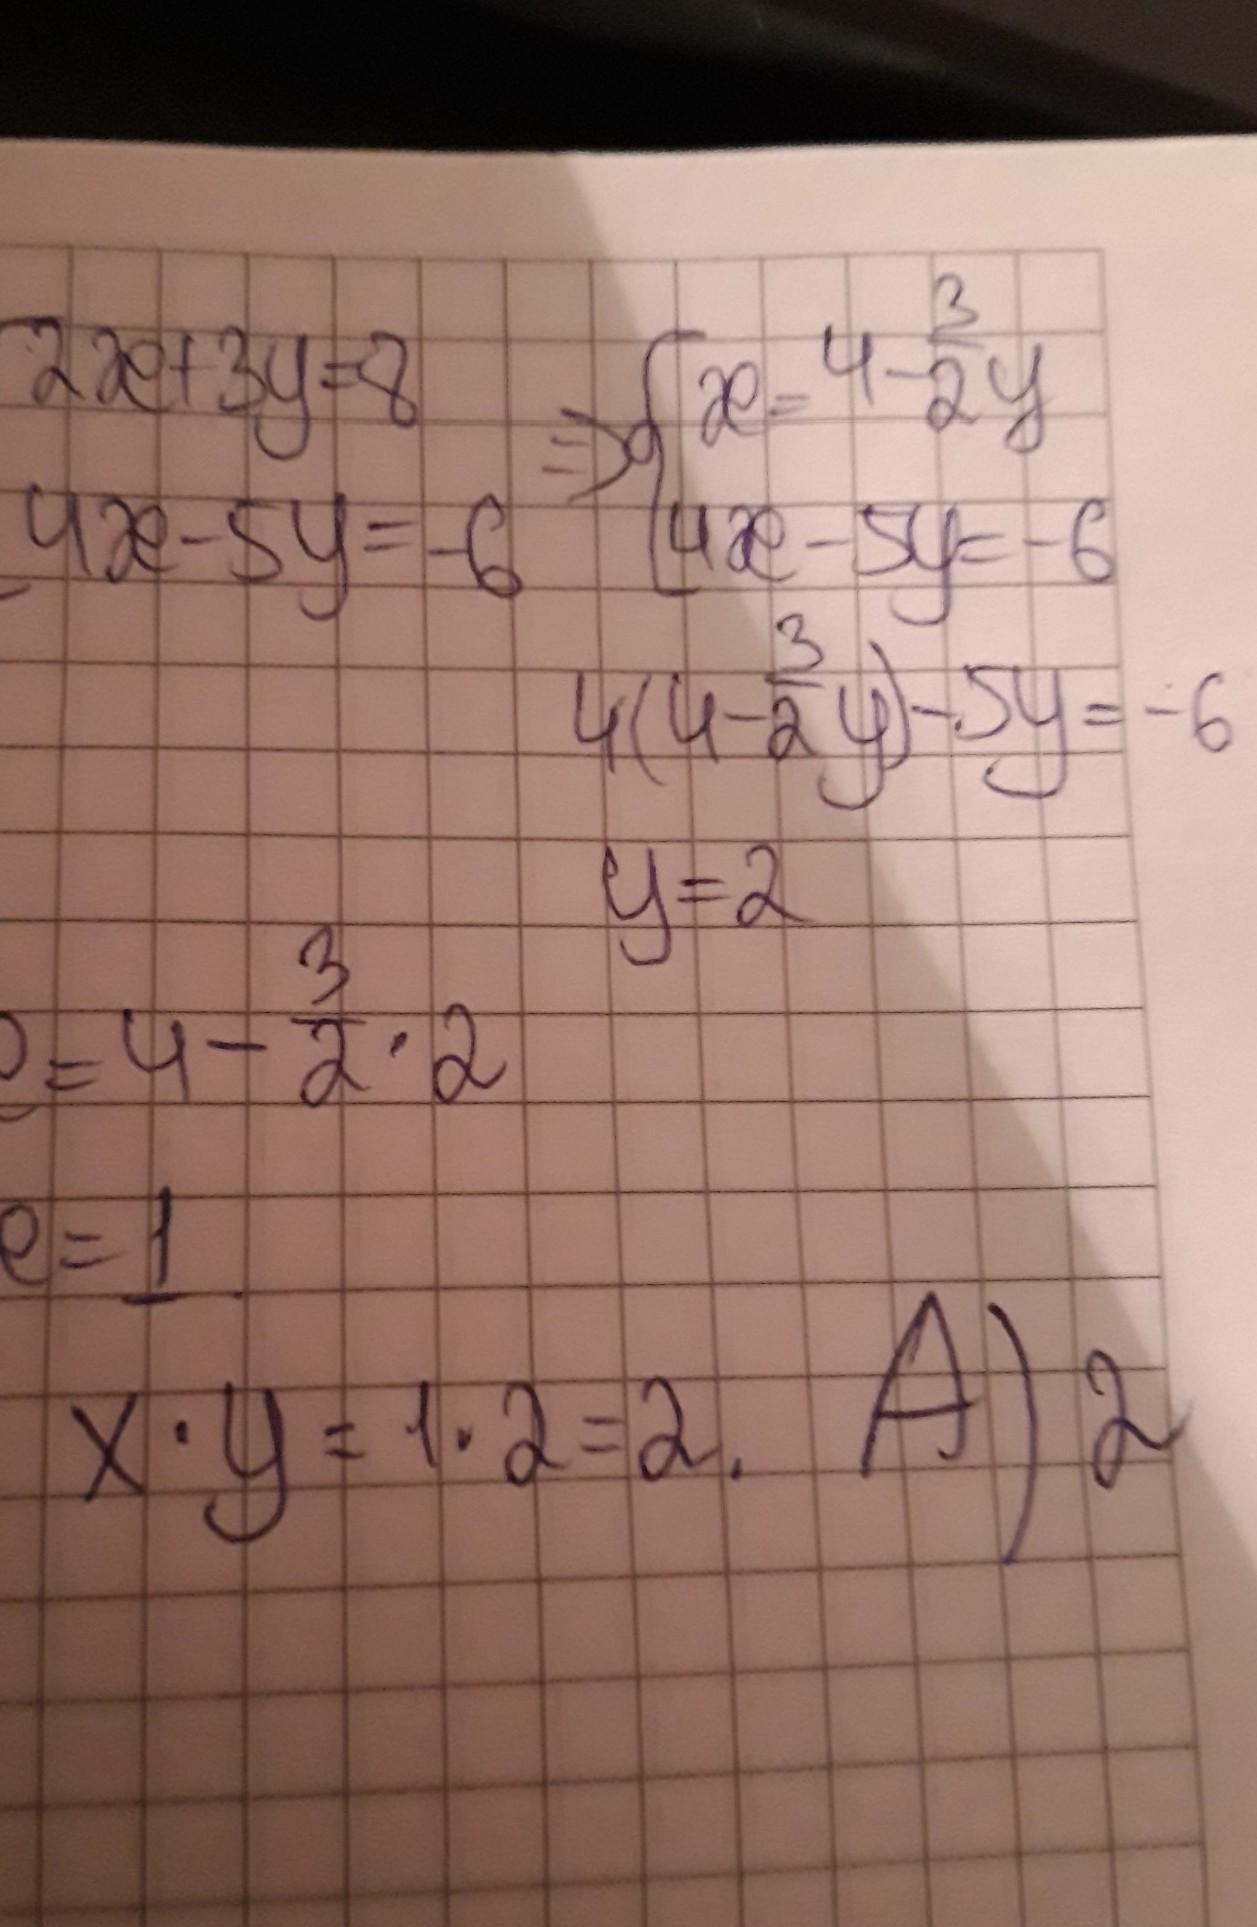 2x+3y=8 ⇒ { x=4-3/2y
4x-5y=-6 4x-5y=-6
4(4-3/2y)-5y=-6
y=2
x=4-3/2·2
x=1
x·y=1·2=2. A) 2